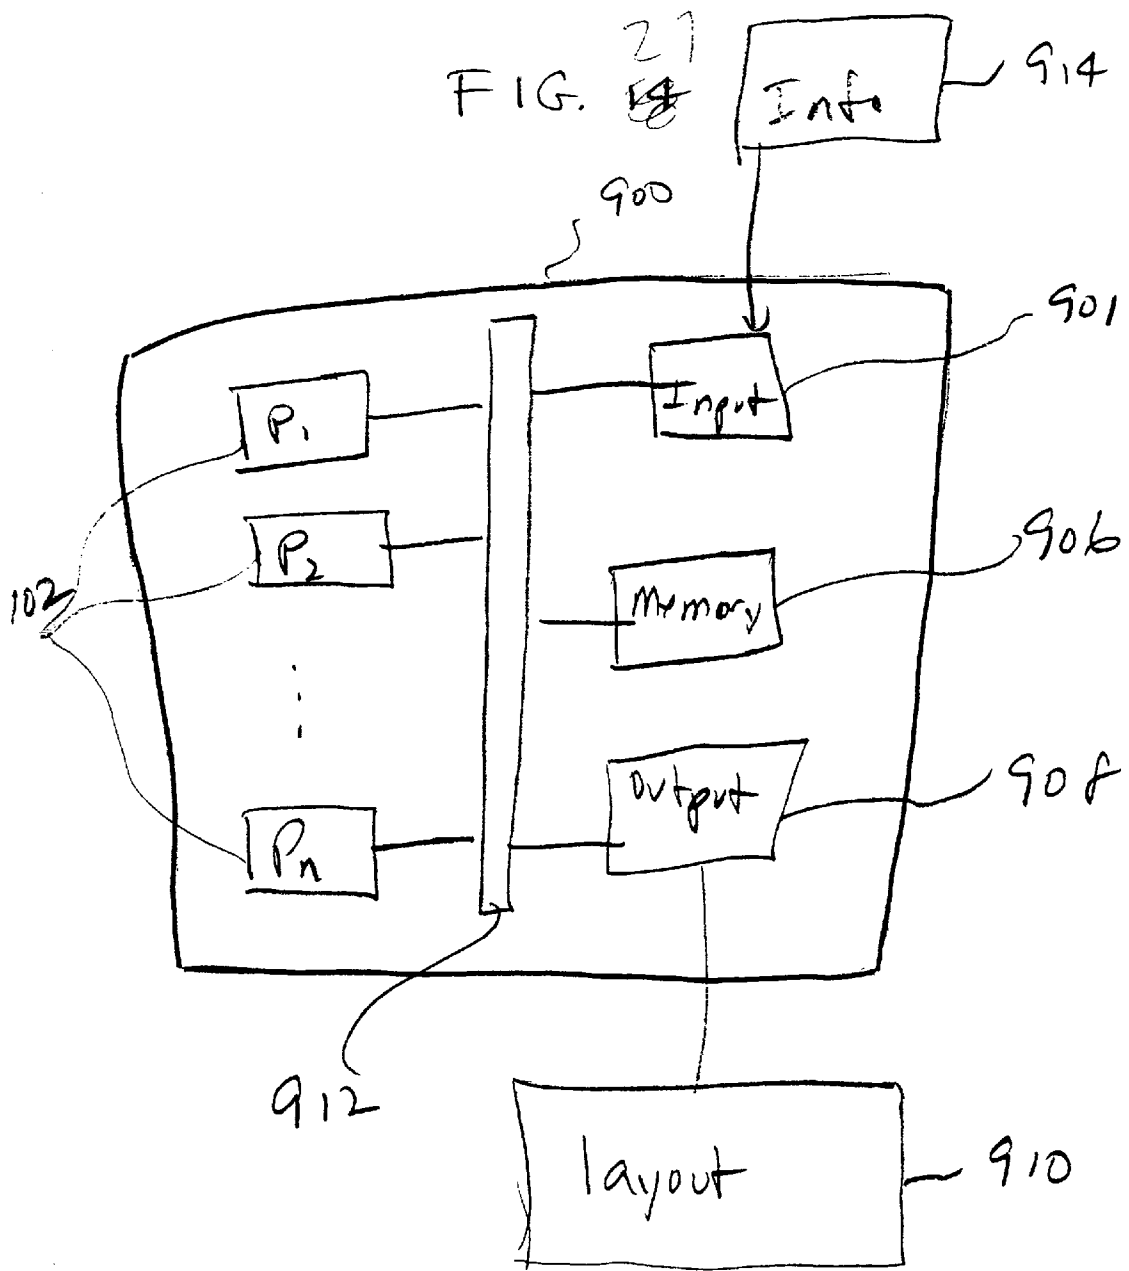 27
FIG.
Info
914
900
901
Input
P1
P2
906
Memory
102
Output
908
Pn
912
layout
910